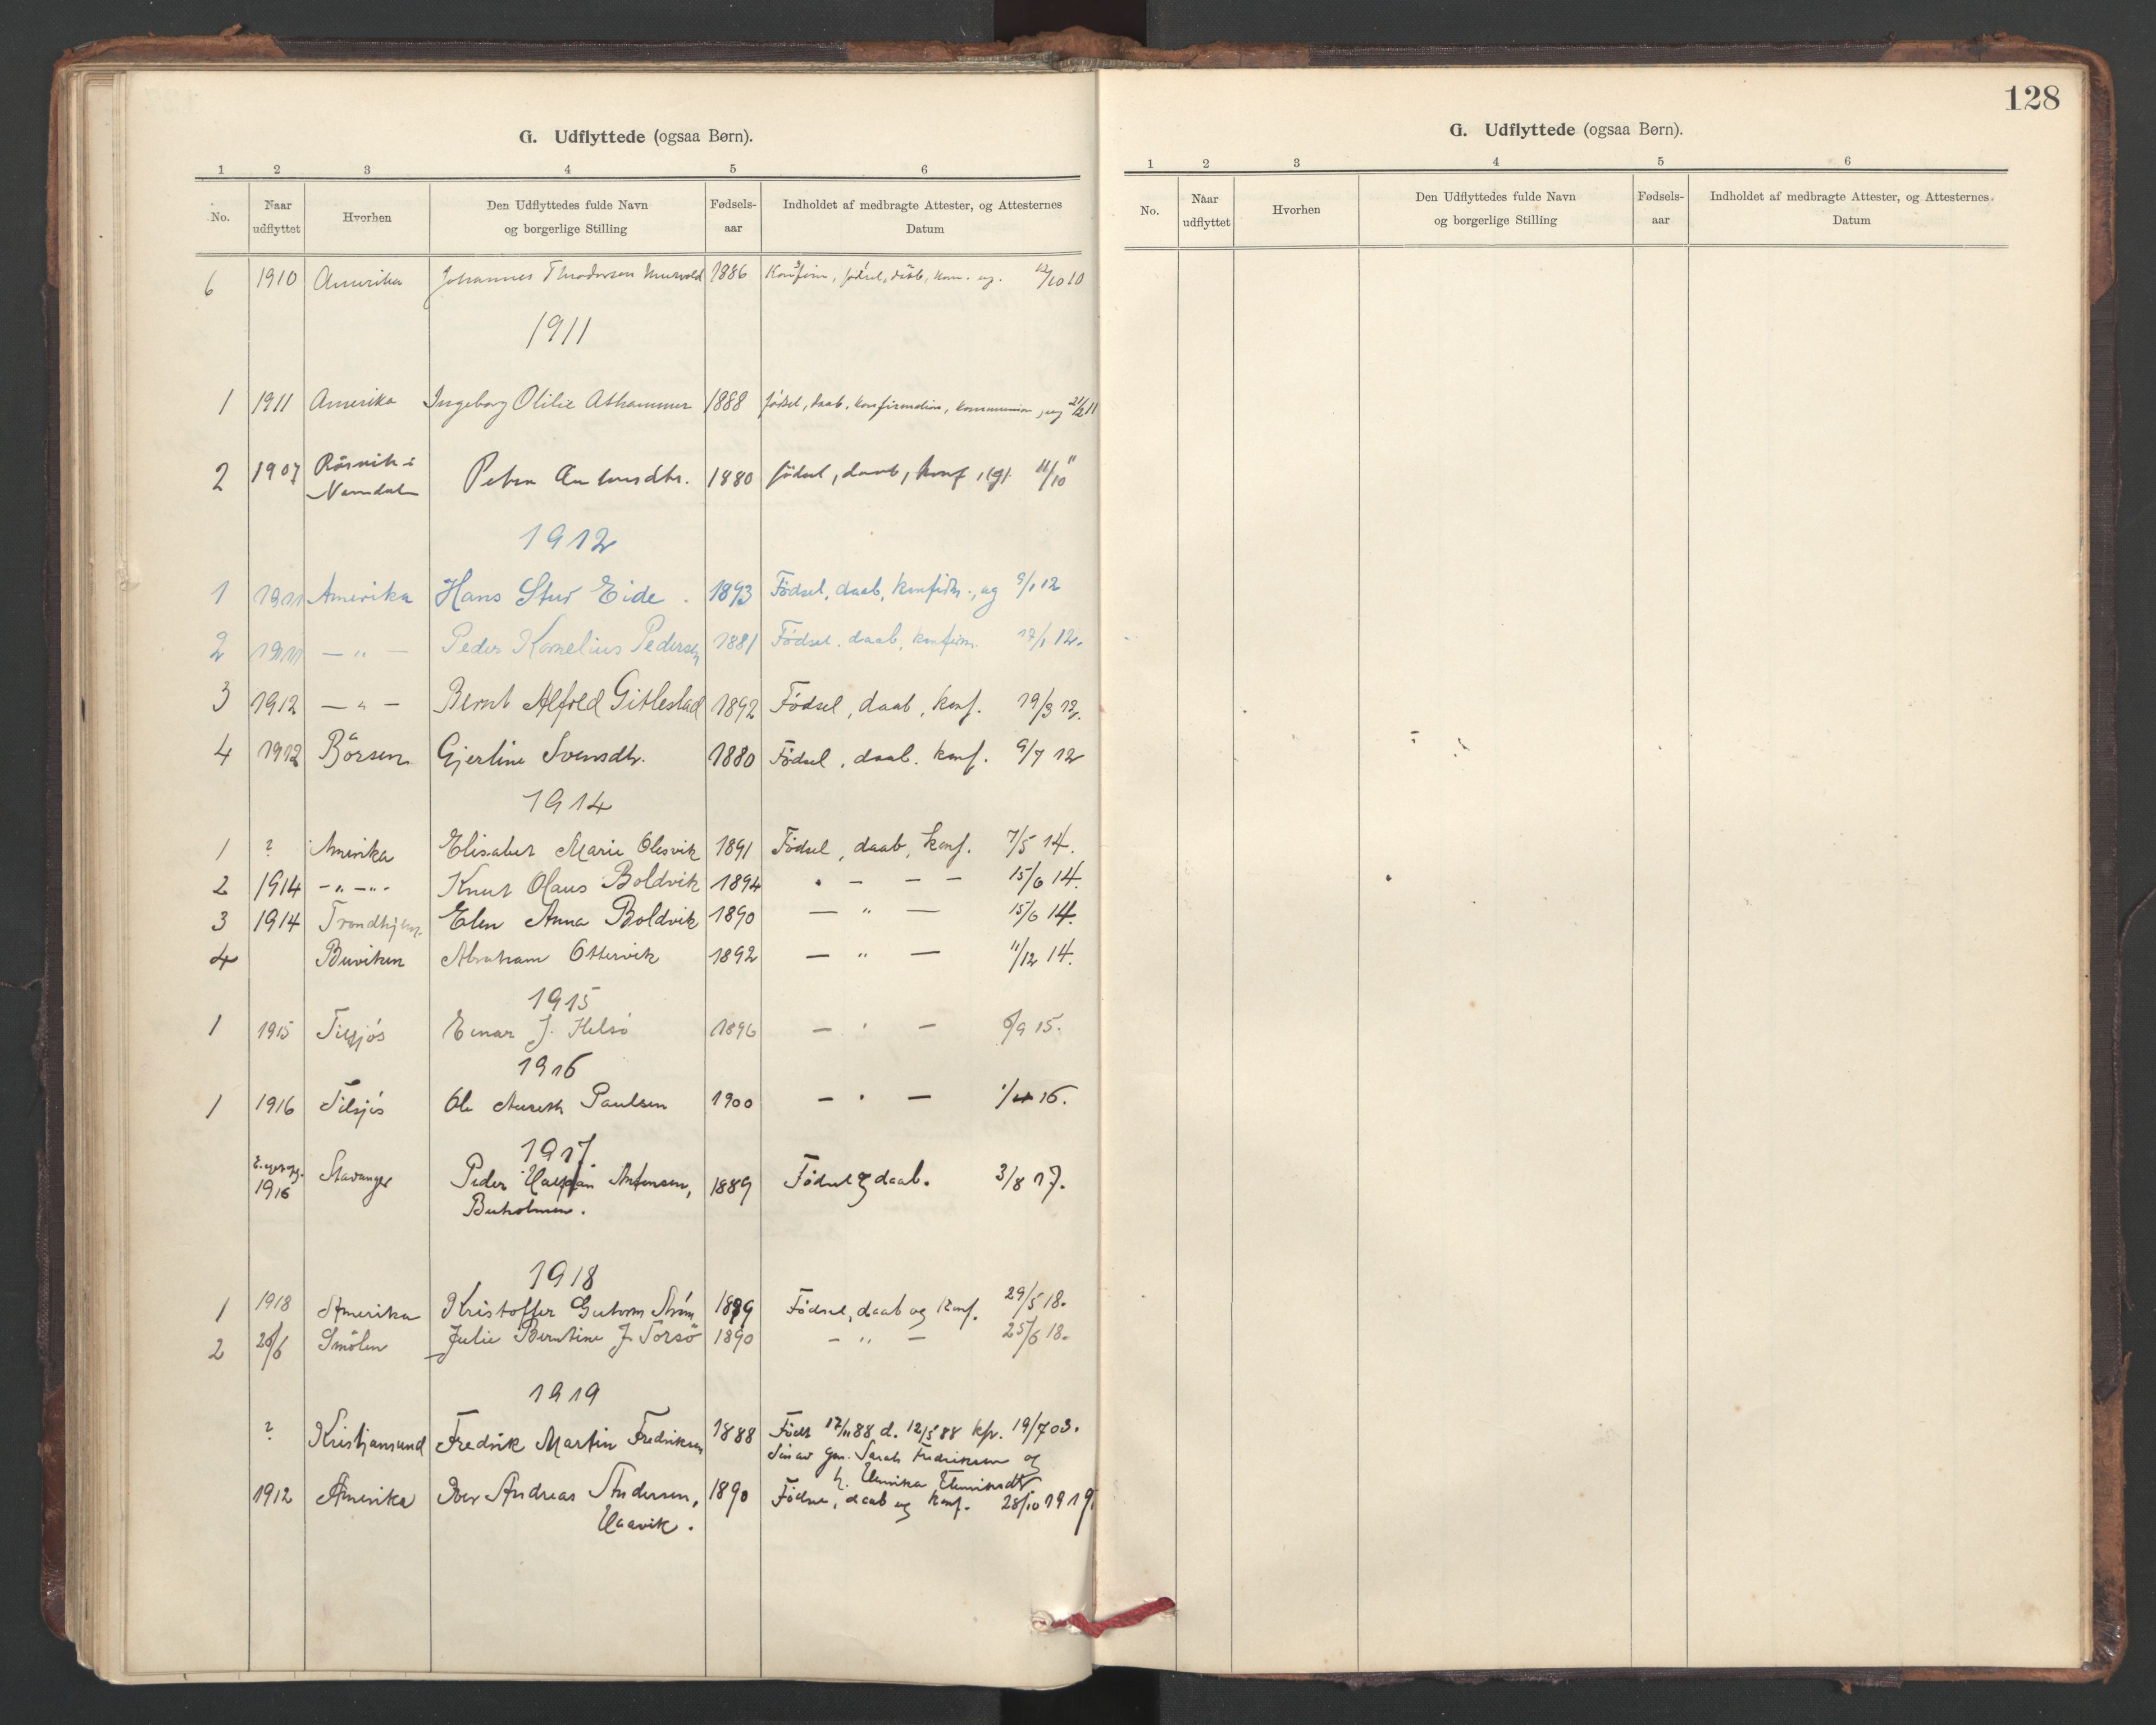 128
G. Udflyttede (ogsaa Børn).
1 2 3 4 5 6
No. Naar udflyttet Hvorhen Den Udflyttedes fulde Navn og borgerlige Stilling Fødsels-aar Indholdet af medbragte Attester, og Attesternes Datum
6 1910 Amerika Johannes 1886 fødsel, daab, kom. og. 12/10 10
1911
1 1911 Amerika Ingeborg Otilie Athammer 1888 fødsel, daab, konfirmation, kommunion, ug 21/2 11
2 1907 Rörvik i
Namdalen Petra 1880 födsel, daab, konf, 11/10 "
1912
1 1911 Amerika Hans Stur Eide. 1893 Födsel, daab, konfirm., ug 9/1 12
2 1911 — „ — Peder Kornelius Pedersen 1881 Födsel, daab, konfirm. 17/1 12.
3 1912 — „ — Bernt Alfred Gitlestad 1892 Födsel, daab, konf. 19/3 12.
4 1912 Börsen Gjertine Svensdtr. 1880 Födsel, daab. konf. 9/7 12
1914
1 ? Amerika Elisabet Marie Olesvik 1891 Födsel, daab, konf. 7/5 14.
2 1914 -„-„- Knut Olaus Boldvik 1894 . — — — 15/6 14.
3 1914 Trondhjem. Elen Anna Boldvik 1890 — „ — 15/6 14.
4 Buviken Abraham Ottervik 1892 — „ — 11/12 14.
1915
1 1915 Einar J. Helsö 1896 — . — 6/9 15.
1916
1 1916 Ole Paulsen 1900 — . — 1/4 16.
1917
1916 Stavanger Peder Antonsen, 1889 Födsel og daab. 3/8 17.
Buholmen.
1918
1 1918 Amerika Kristoffer Gutorm Ström 1899 Födsel, daab og konf. 29/5 18.
2 26/6 Smölen Julie Berntine J. Torsö 1890 — „ — 25/6 18.
1919
? Kristjansund Fredrik Martin Fredriksen 1888 Födt 17/11 88 d. 12/5 88 kfr. 19/7 03.
Fredriksen og
h.
1912 Amerika Iver Andreas Andersen, 1890 Födsel, daab og konf. 28/10 1919
Haavik.
G. Udflyttede (ogsaa Børn).
1 2 3 4 5 6
No. Naar udflyttet Hvorhen Den Udflyttedes fulde Navn og borgerlige Stilling Fødsels-aar Indholdet af medbragte Attester, og Attesternes Datum